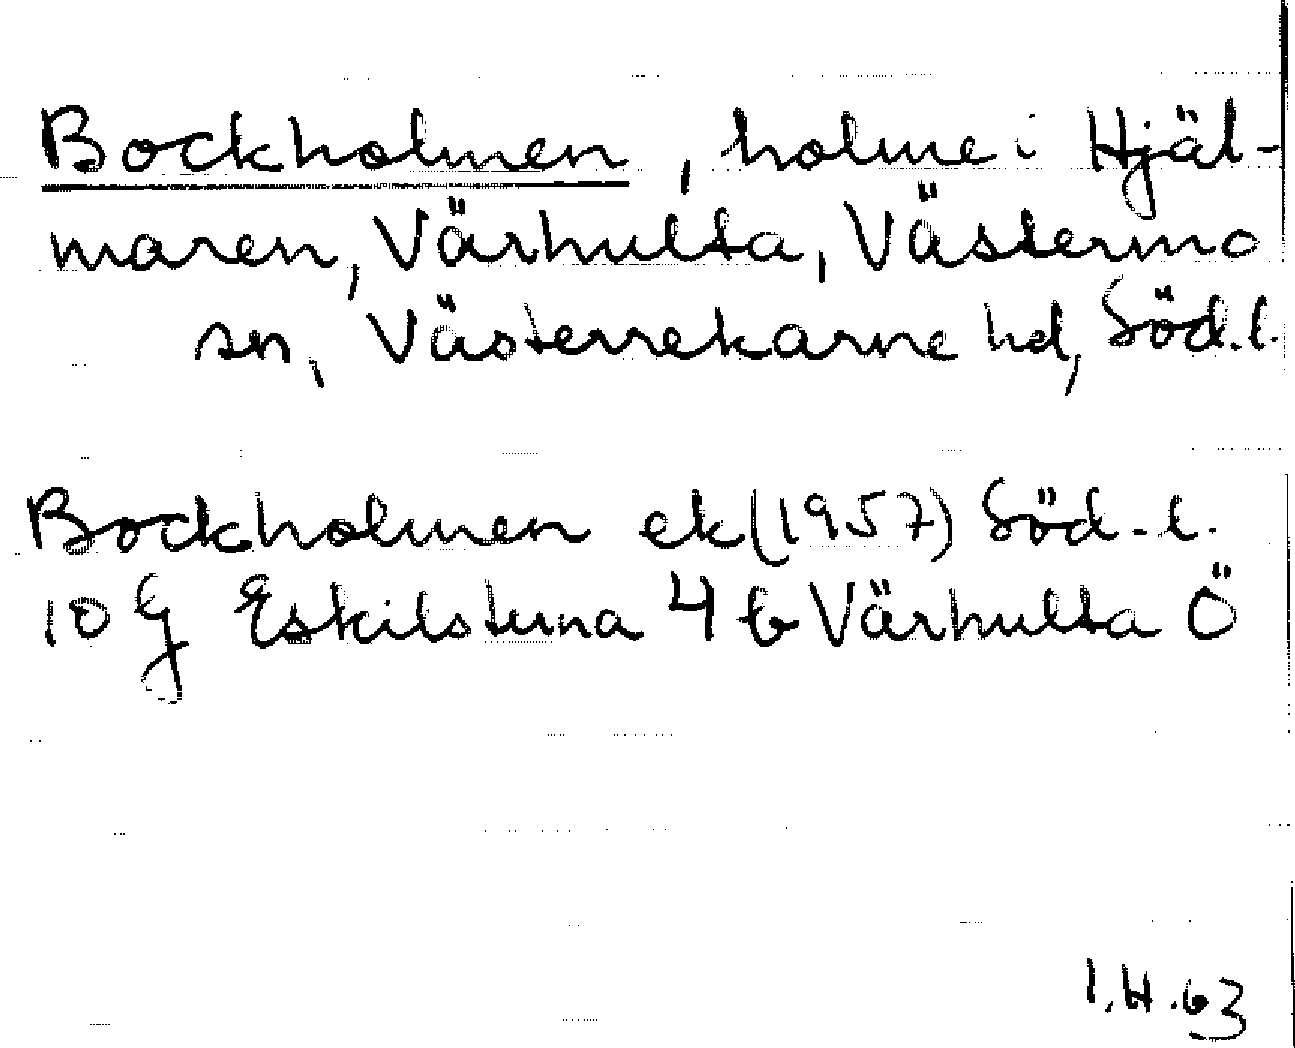 Bockholmen, holme i Hjäl-
maren, Värhulta, Västermo
sn, Västerrekarne hd, Söd.l.
Bockholmen ek (1957) Söd-l.
10 G Eskilstuna 4 b Värhulta Ö
I.H.63